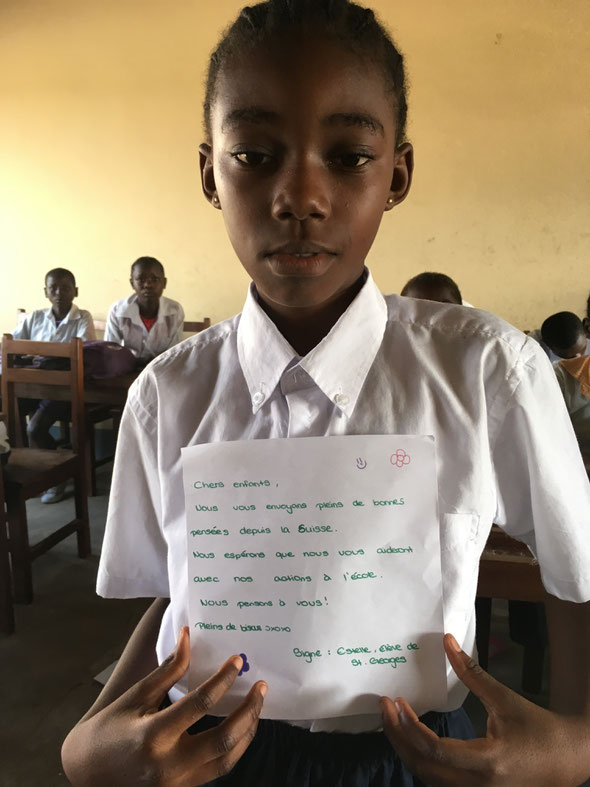 Chers enfants,
Nous vous envoyons pleins de bonnes
pensées depuis la Suisse.
Nous espérons que nous vous aideront
avec nos actions à l'école.
Nous pensons à vous!
Pleins de bisous xoxo
Signe : Estelle, élève de
St. Georges